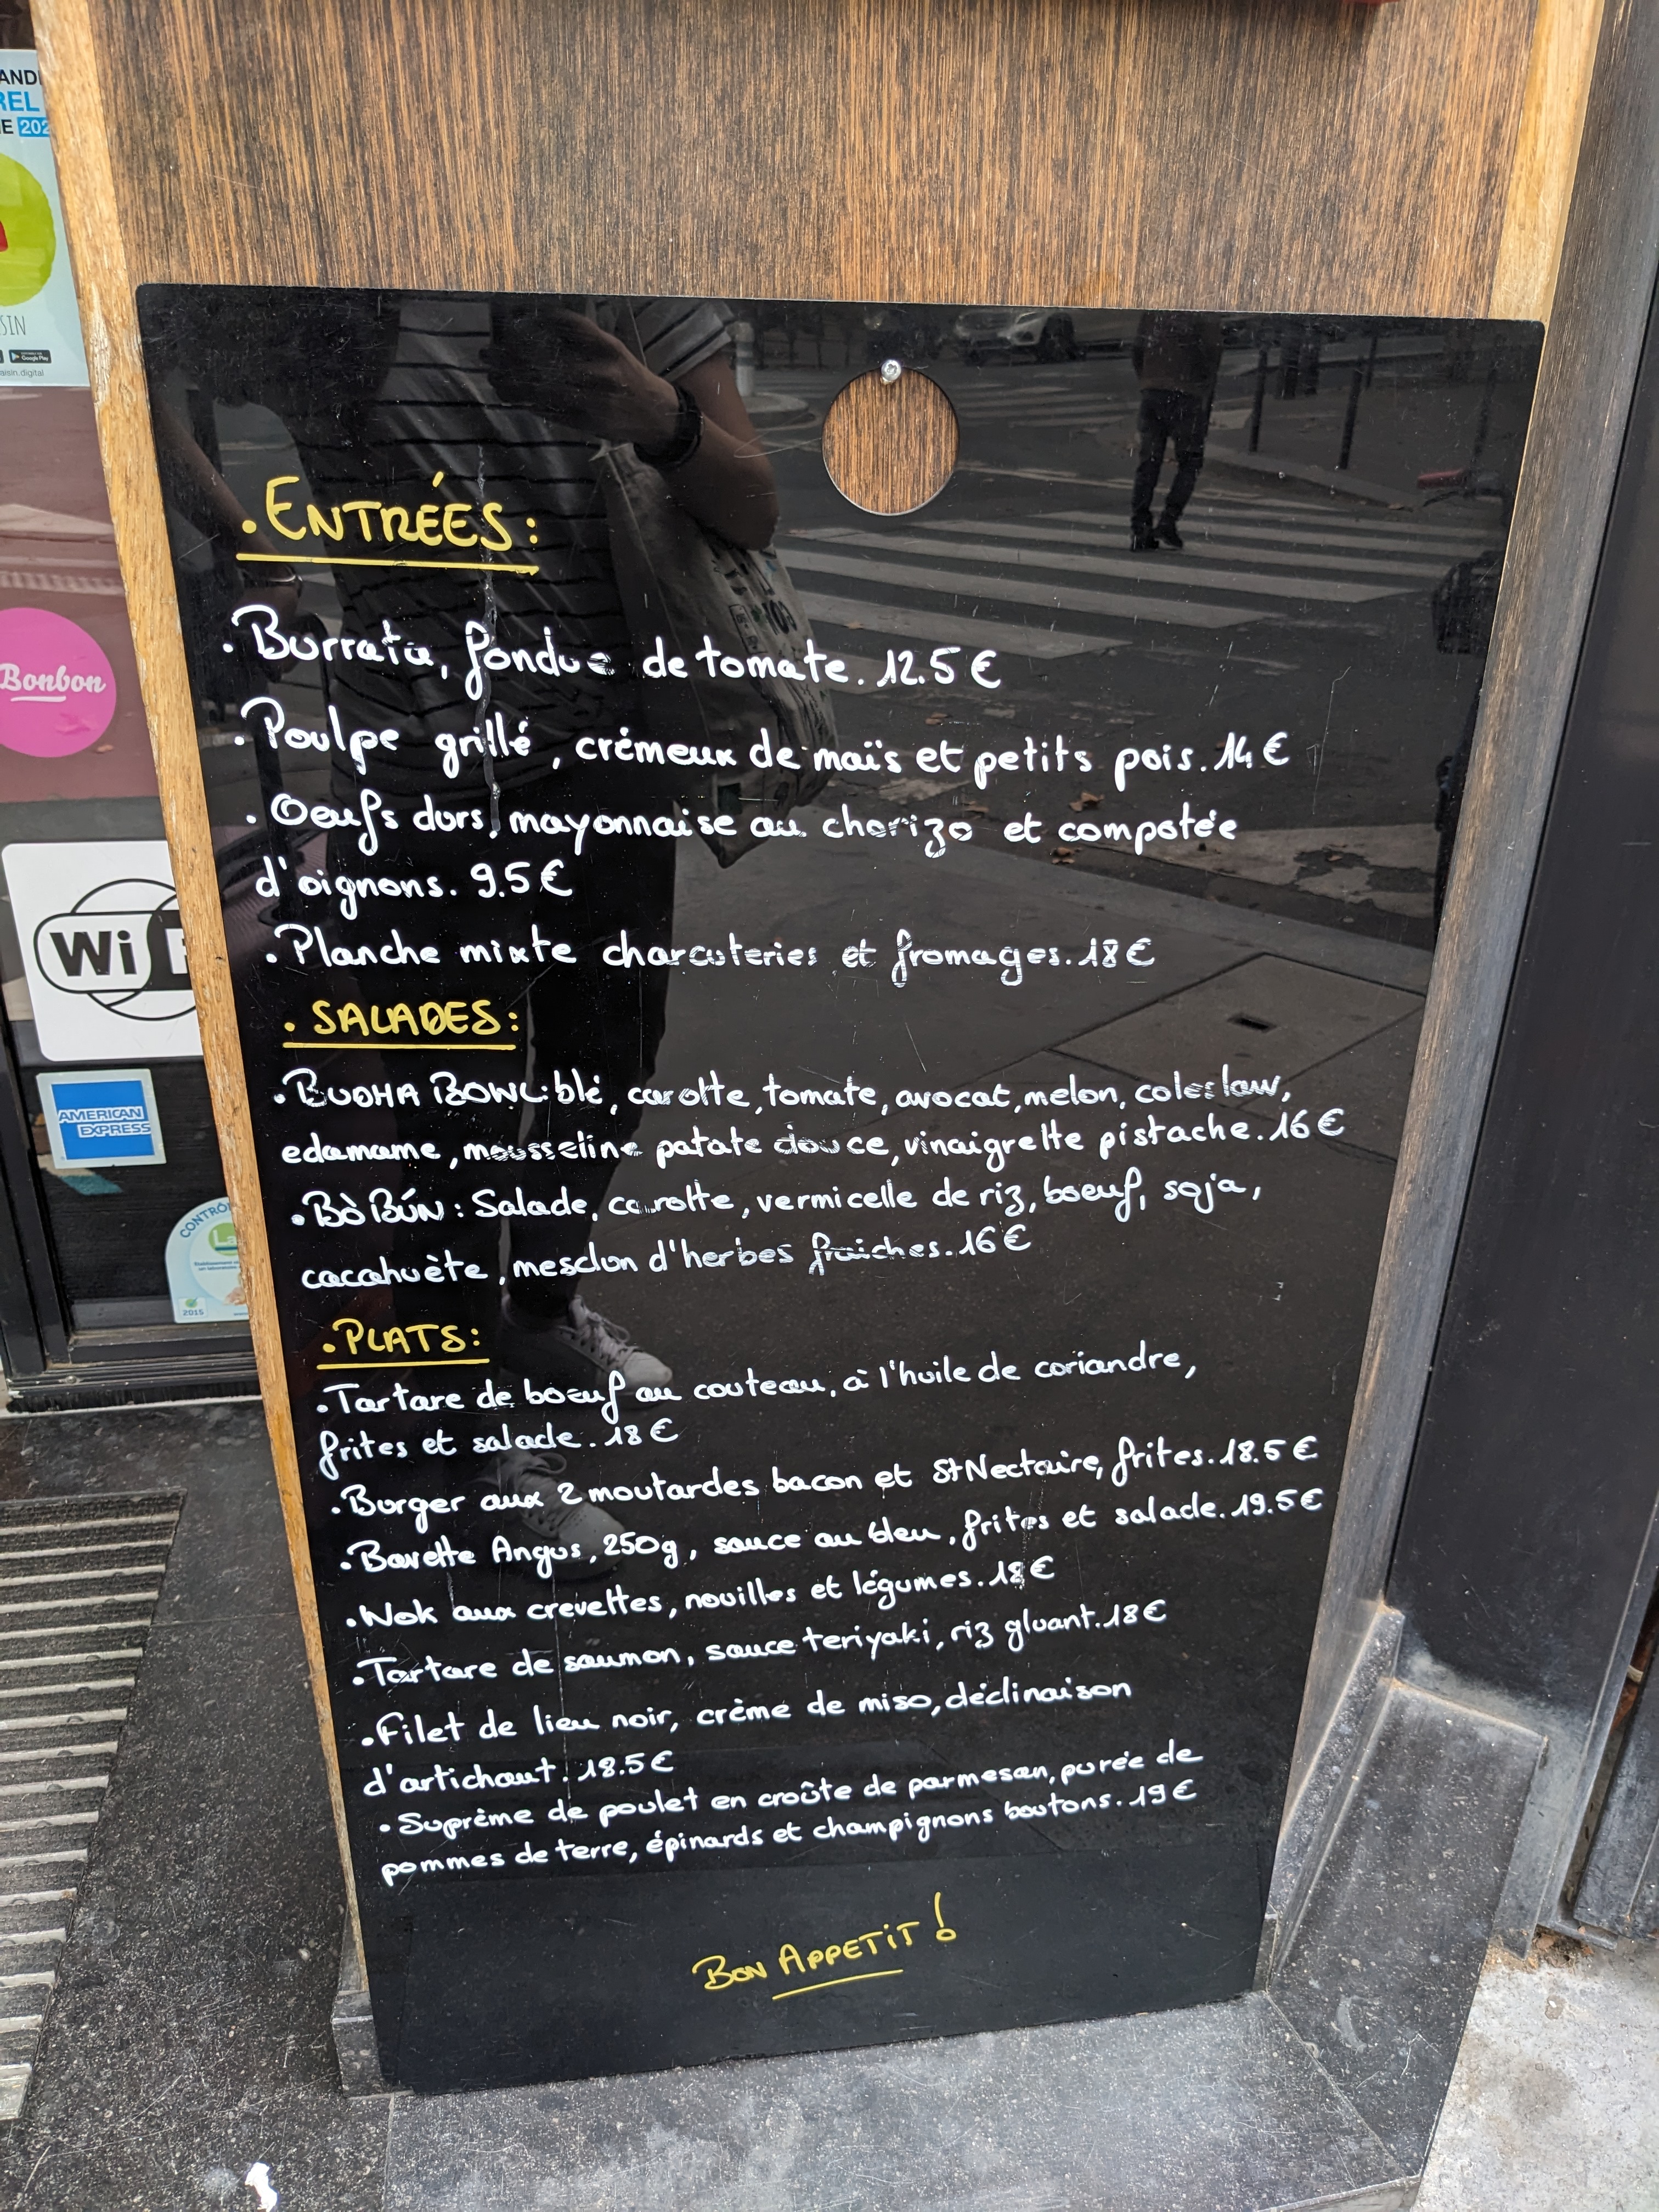 AND
REL
E 202
SIN
Google Play
aisin.digital
Bonbon
Wi F
AMERICAN
EXPRESS
CONTRÔ
La
2015
. ENTRÉES:
. Burrata, fondue de tomate. 12.5€
. Poulpe grillé, crémeux de maïs et petits pois. 14€
. Oeufs durs, mayonnaise au chorizo et compotée
d'oignons. 9.5€
. Planche mixte charcuteries et fromages. 18€
. SALADES:
. BUDHA BOWL: blé, carotte, tomate, avocat, melon, coleslaw,
edamame, mousseline patate douce, vinaigrette pistache. 16€
. BÒ BÚN: Salade, carotte, vermicelle de riz, boeuf, soja,
cacahuète, mesclun d'herbes fraiches. 16€
. PLATS:
. Tartare de boeuf au couteau, à l'huile de coriandre,
frites et salade. 18€
. Burger aux 2 moutardes bacon et St Nectaire, frites. 18.5€
. Bavette Angus, 250g, sauce au bleu, frites et salade. 19.5€
. Wok aux crevettes, nouilles et légumes. 18€
. Tartare de saumon, sauce teriyaki, riz gluant. 18€
. Filet de lieu noir, crème de miso, déclinaison
d'artichaut. 18.5€
. Suprème de poulet en croûte de parmesan, purée de
pommes de terre, épinards et champignons boutons. 19€
BON APPETIT!